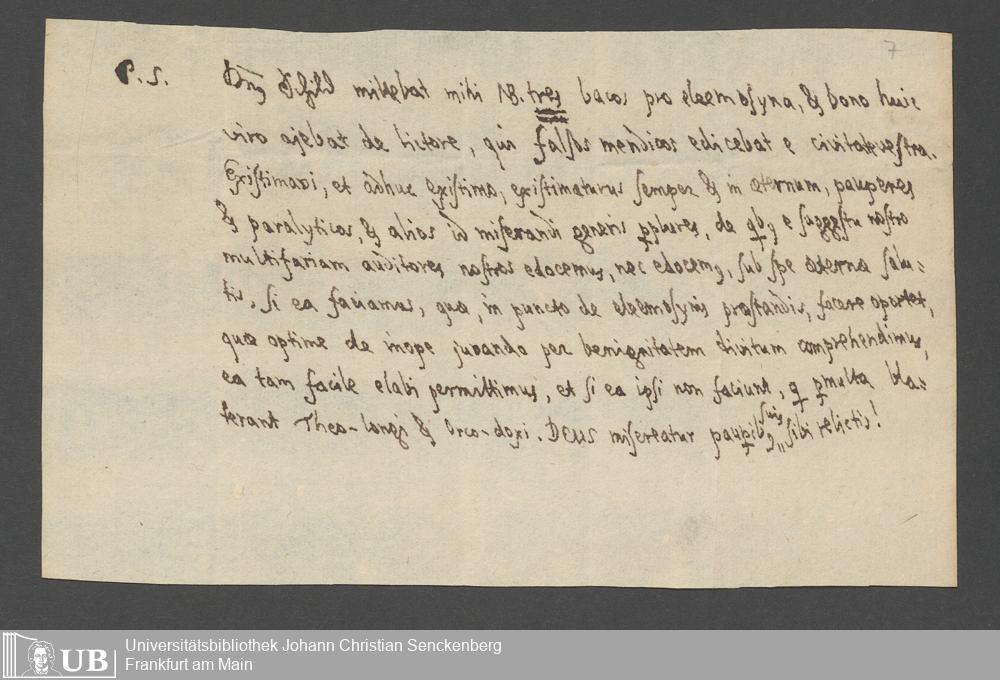 7
P.S. Dnꝰ Schild mittebat mihi NB. tres bacos pro eleemosyna, & bono huic
viro ajebat de lictore, qui falsos mendicos edicebat e civitate vestra.
Existimavi, et adhuc existimo, existimaturus semper & in æternum, pauperes
& paralyticos, & alios id miserandi generis ꝓplures, de qbꝰ e suggestu nostro
multifariam auditores nostros edocemus, nec edocemꝰ, sub spe æternæ salu-
tis. Si ea faciamus, quæ, in puncto de eleemosynis præstandis, facere oportet,
quæ optime de inope juvando per benignitatem divitum comprehendimus,
ea tam facile elabi permittimus, et si ea ipsi non faciunt, q ꝑmulta bla-
terant Theo-longi & Orco-doxi. DEUS misereatur paupibꝰ suis sibi relictis!
UB Universitätsbibliothek Johann Christian Senckenberg
Frankfurt am Main